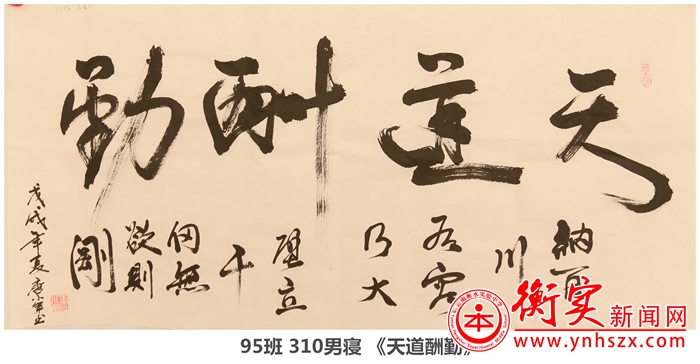 天道酬勤
納百
川
有容
乃大
壁立
千
仞無
欲則
剛
戊戌年夏
衡实新闻网
www.ynhszx.com
95班 310男寝 《天道酬勤》